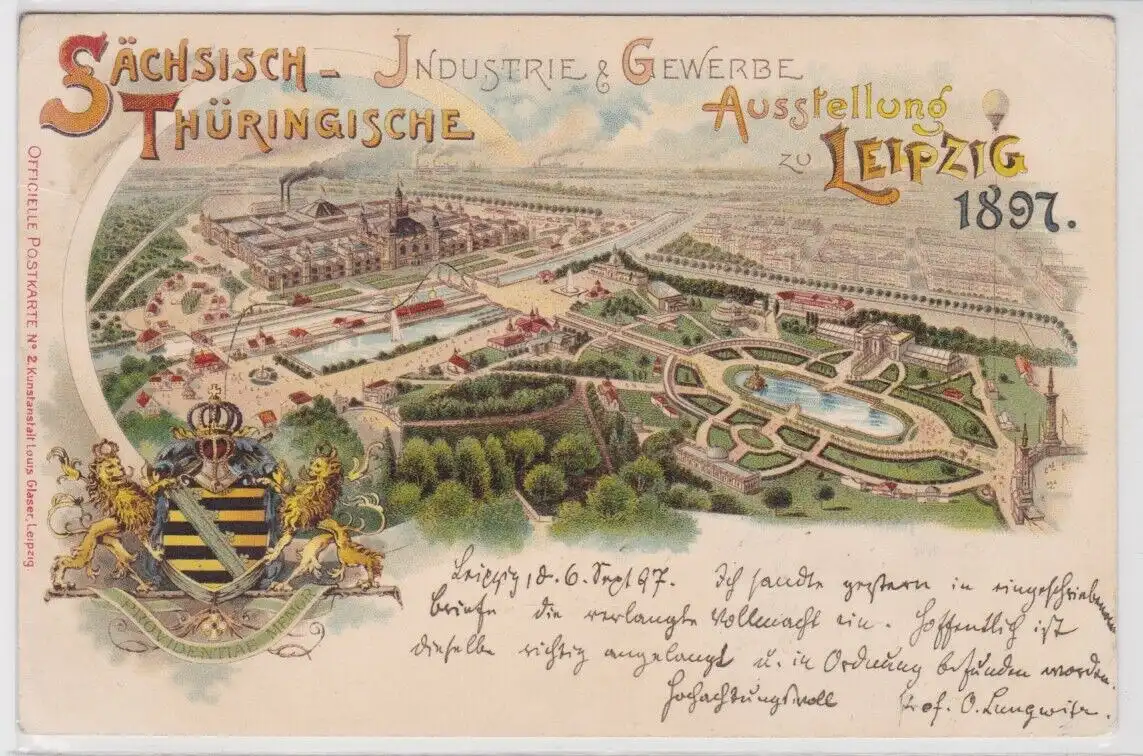 SÄCHSISCH-
THÜRINGISCHE
INDUSTRIE & GEWERBE
AUSSTELLUNG
ZU LEIPZIG
1897.
OFFICIELLE POSTKARTE Nº 2. Kunstanstalt Louis Glaser, Leipzig.
PROVIDENTIAE MEMOR
Leipzig, d. 6. Sept 97. Ich sandte gestern in eingeschriebenem
Briefe die verlangte Vollmacht ein. Hoffentlich ist
dieselbe richtig angelangt u. in Ordnung befunden worden.
Hochachtungsvoll Prof. O.